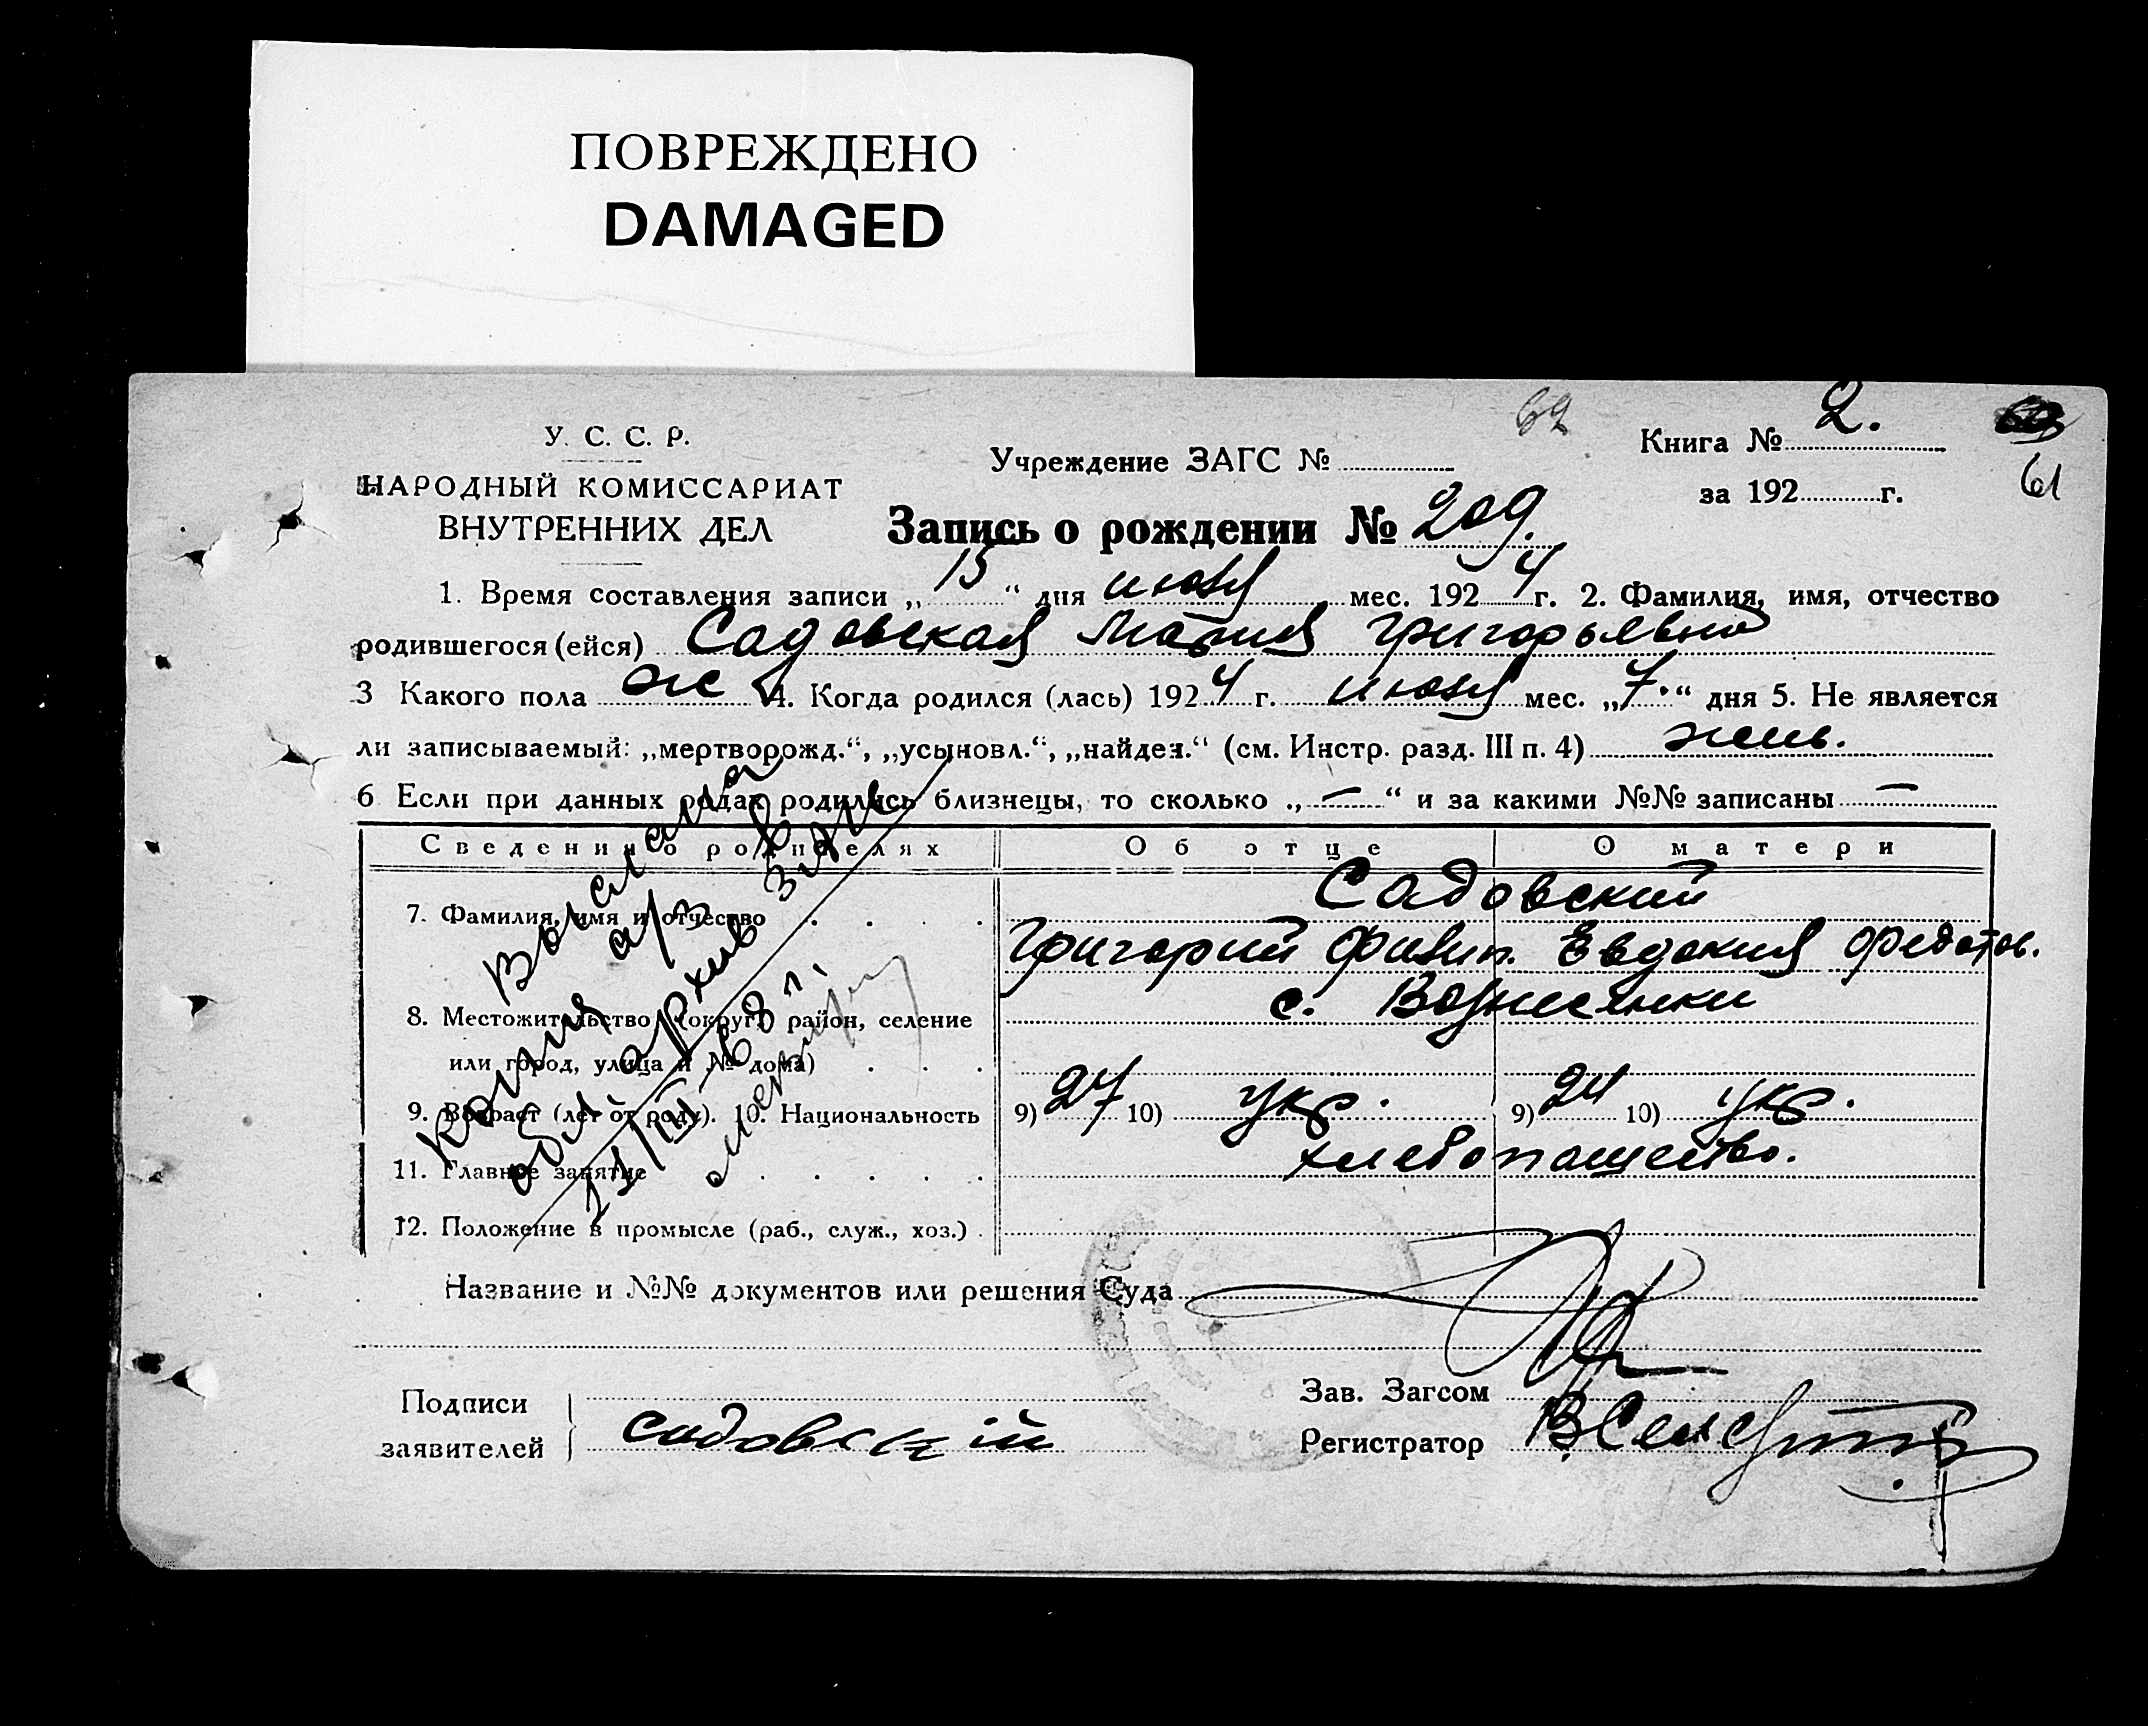 ПОВРЕЖДЕНО
DAMAGED
У. С. С. Р.
НАРОДНЫЙ КОМИССАРИАТ
ВНУТРЕННИХ ДЕЛ
62
Учреждение ЗАГС №
Книга № 2.
за 192 г.
61
Запись о рождении № 209.
1. Время составления записи „ 15 “ дня июля мес. 192 4 г. 2. Фамилия, имя, отчество
родившегося (ейся) Садовская Мария Григорьевна
3 Какого пола ж 4. Когда родился (лась) 192 4 г. июля мес. „ 7. “ дня 5. Не является
ли записываемый: „мертворожд.“, „усыновл.“, „найден.“ (см. Инстр. разд. III п. 4)
6 Если при данных родах родились близнецы, то сколько „ — “ и за какими №№ записаны —
Сведения о родителях Об отце О матери
7. Фамилия, имя и отчество Садовский
Григорий Филип. Евдокия Федотов.
8. Местожительство (округ, район, селение с. Вознесенки
или город, улица и № дома)
9. Возраст (лет от роду). 10. Национальность 9) 27 10) укр. 9) 24 10) укр.
11. Главное занятие хлебопашество.
12. Положение в промысле (раб., служ., хоз.)
Копия выслана
обл. архив
Название и №№ документов или решения Суда
Подписи
заявителей
Садовскій
Зав. Загсом
Регистратор